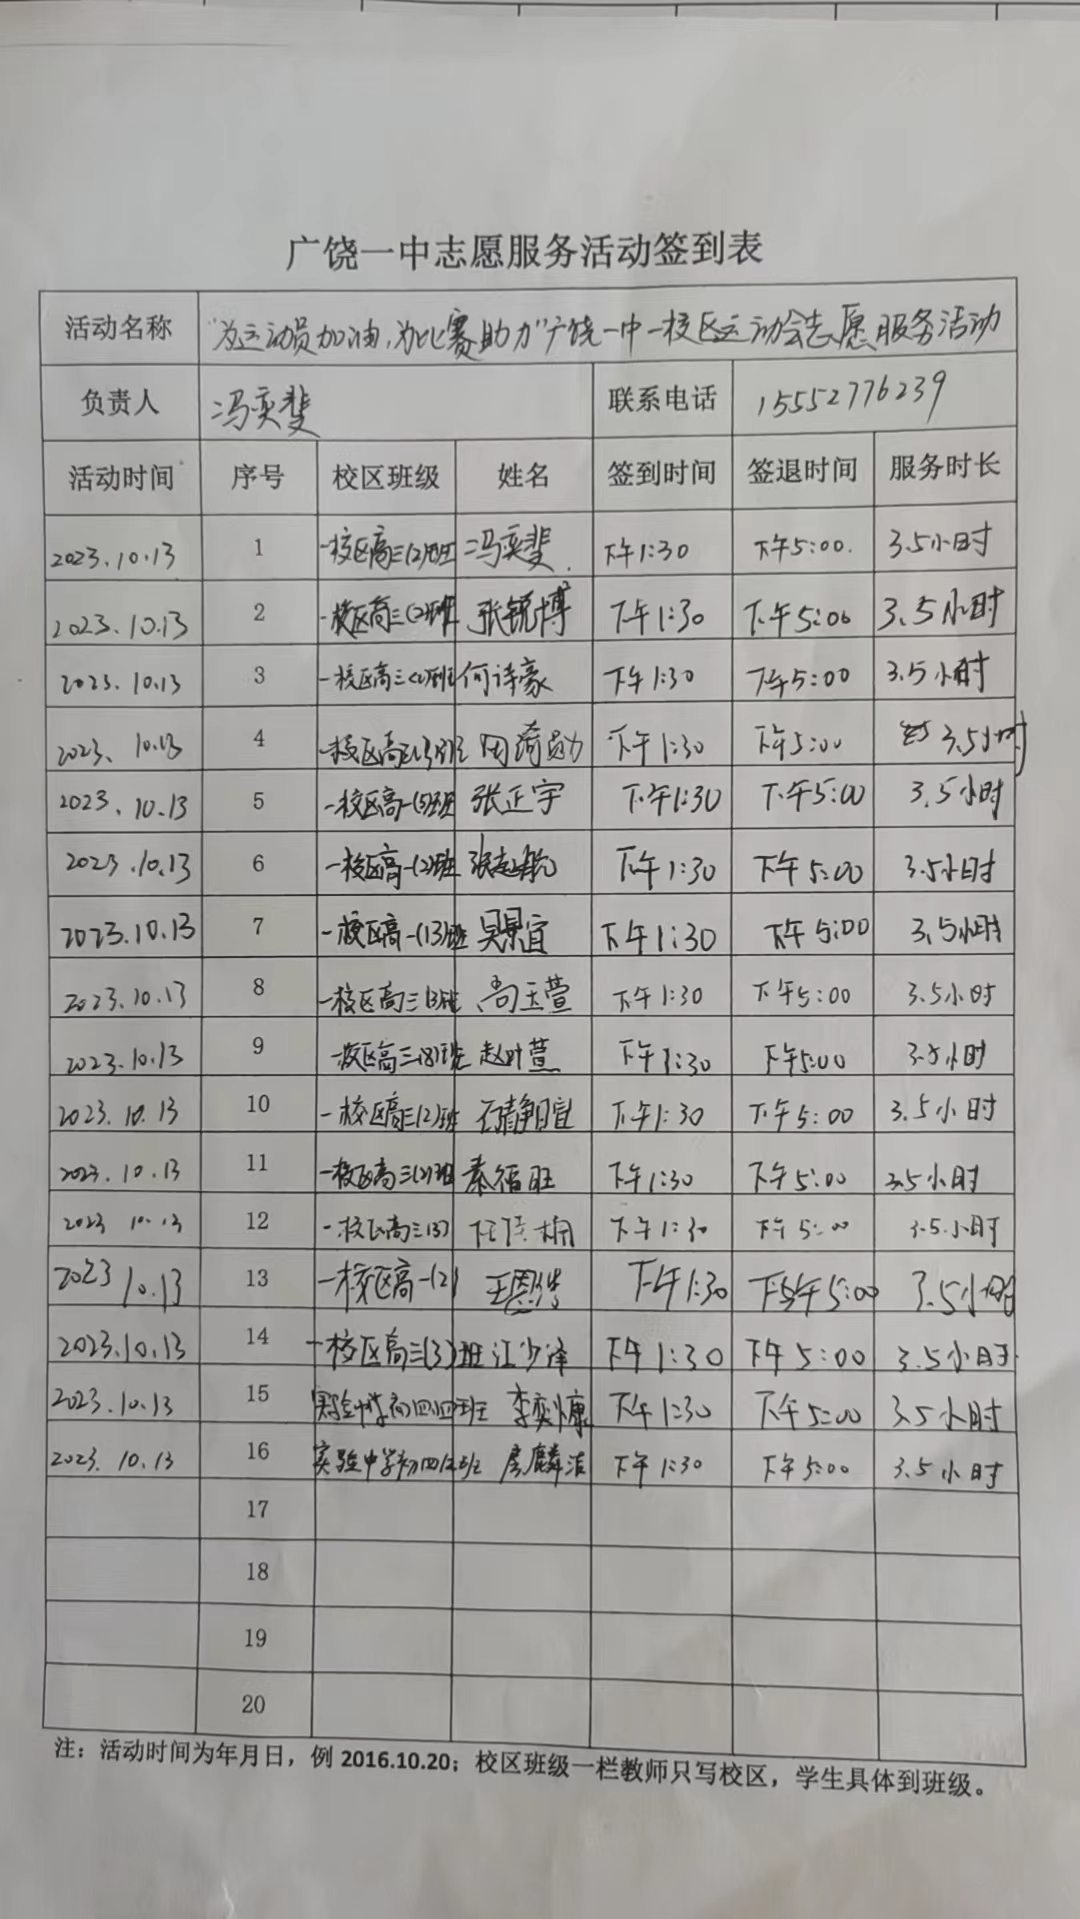 广饶一中志愿服务活动签到表
活动名称 "为运动员加油,为比赛助力"广饶一中一校区运动会志愿服务活动
负责人 冯奕斐 联系电话 15552776239
活动时间 序号 校区班级 姓名 签到时间 签退时间 服务时长
2023.10.13 1 一校区高三(2)班 冯奕斐 下午1:30 下午5:00. 3.5小时
2023.10.13 2 一校区高三(2)班 张锐博 下午1:30 下午5:00 3.5小时
2023.10.13 3 一校区高三(2)班 何诗豪 下午1:30 下午5:00 3.5小时
2023.10.13 4 一校区高 周琦勋 下午1:30 下午5:00 3.5小时
2023.10.13 5 一校区高一 张正宇 下午1:30 下午5:00 3.5小时
2023.10.13 6 一校区高一(2)班 下午1:30 下午5:00 3.5小时
2023.10.13 7 一校区高一(13)班 吴景宜 下午1:30 下午5:00 3.5小时
2023.10.13 8 一校区高三 尚玉萱 下午1:30 下午5:00 3.5小时
2023.10.13 9 一校区高三(8)班 赵叶萱 下午1:30 下午5:00 3.5小时
2023.10.13 10 一校区高三(2)班 石静宜 下午1:30 下午5:00 3.5小时
2023.10.13 11 一校区高三(2)班 秦福旺 下午1:30 下午5:00 3.5小时
2023 10.13 12 一校区高三(3) 下午1:30 下午5:00 3.5小时
2023 10.13 13 一校区高一(2) 王恩浩 下午1:30 下午5:00 3.5小时
2023.10.13 14 一校区高三(3)班 江少泽 下午1:30 下午5:00 3.5小时
2023.10.13 15 实验中学初四四班 李奕康 下午1:30 下午5:00 3.5小时
2023.10.13 16 实验中学初四 班 房麟洁 下午1:30 下午5:00 3.5小时
17
18
19
20
注：活动时间为年月日，例 2016.10.20；校区班级一栏教师只写校区，学生具体到班级。